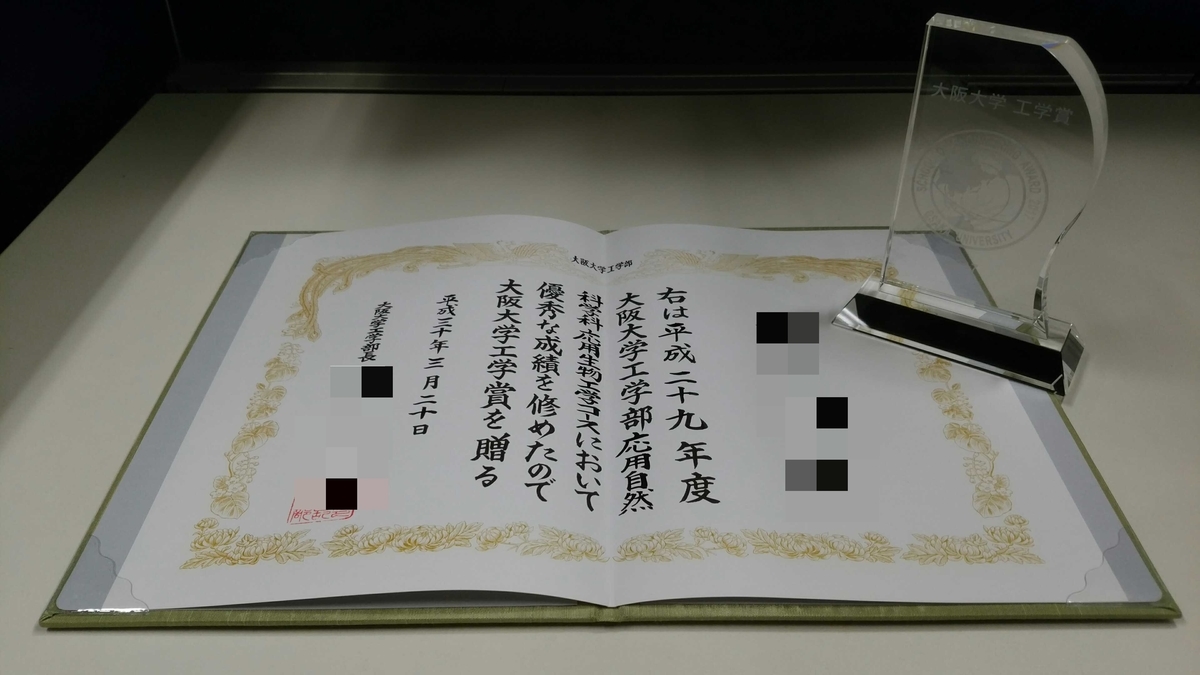 大阪大学工学部
右は平成二十九年度
大阪大学工学部応用自然
科学科応用生物工学コースにおいて
優秀な成績を修めたので
大阪大学工学賞を贈る
平成三十年三月二十日
大阪大学工学部長
大阪大学 工学賞
AWARD
UNIVERSITY